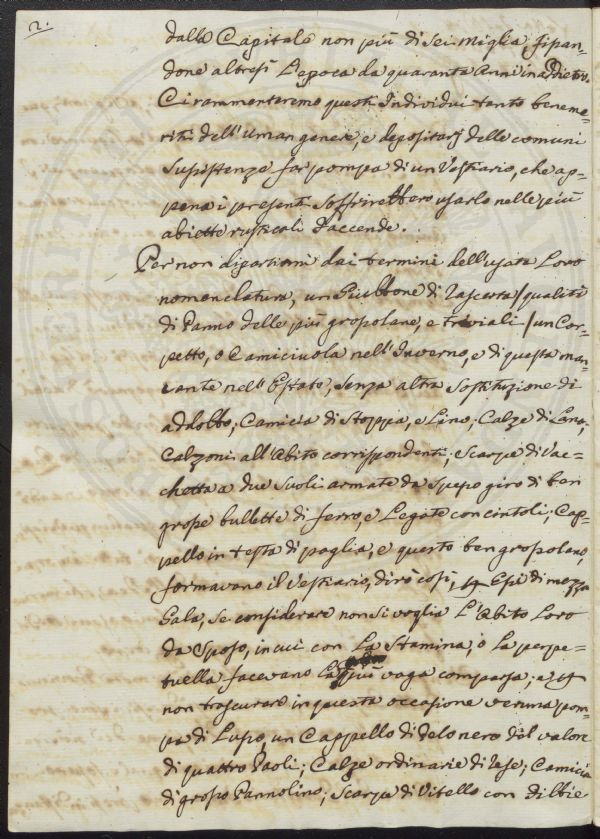 2.
dalla Capitale non più di sei miglia, fissan=
done altresì l'epoca da quaranta Anni in addietro.
Ci rammenteremo questi Individui tanto beneme=
riti dell'uman genere, e depositarj delle comuni
sussistenze far pompa di un Vestiario, che ap=
pena i presenti soffrirebbero usarlo nelle più
abiette rusticali faccende.
Per non dipartirmi dai termini dell'usata Loro
nomenclatura, un Giubbone di / qualità
di Panno delle più grossolane, e triviali / un Cor=
petto, o Camiciuola nell'Inverno, e di questa man=
cante nell'Estate, senza altra sostituzione di
addobbo; Camicia di Stoppa, e Lino; Calze di Lana;
Calzoni all'Abito corrispondenti; Scarpe di Vac=
chetta a due Suoli armate da spesso giro di ben
grosse bullette di ferro, e Legate con cintoli; Cap=
pello in testa di paglia, e questo ben grossolano,
formavano il Vestiario, dirò così, Essi di mezza
Gala, se considerare non si voglia L'Abito Loro
da Sposo, in cui con La Stamina, o La perpe=
tuella facevano La più vaga comparsa; e
non trascurare in questa occasione veruna pom=
pa di Lusso, un Cappello di pelo nero del valore
di quattro Paoli; Calze ordinarie di ; Camicia
di grosso Pannolino; Scarpe di Vitello con fibbie